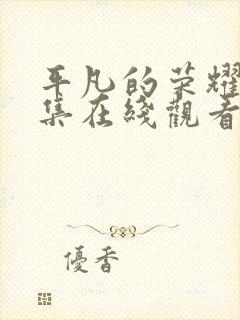 平凡的荣耀
集在綫觀看
優香